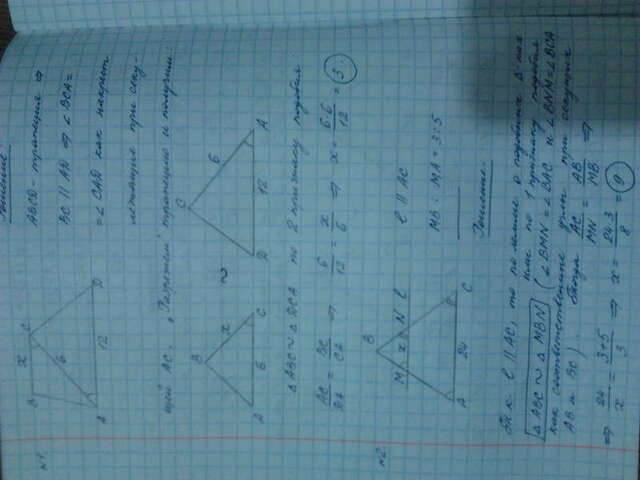 №1.
B x C
6
A 12 D
Решение
ABCD - трапеция ⇒
BC ∥ AD ⇒ ∠BCA =
= ∠CAD как накрест
лежащие при секу-
щей AC. „Разрежем" трапецию и получим:
B x C A 6
~
C 6 A D 12
△ABC ~ △DCA по 2 признаку подобия
AC/DA = BC/CA ⇒ 6/12 = x/6 ⇒ x = 6·6/12 = 3.
№2.
B
M x N ℓ
A 24 C
ℓ ∥ AC
MB : MA = 3:5
Решение
Т.к. ℓ ∥ AC, то по лемме о подобных △-ках
△ABC ~ △MBN или по 1 признаку подобия
(∠BMN = ∠BAC и ∠BNM = ∠BCA
как соответственные углы при секущих
AB и BC). Тогда AC/MN = AB/MB ⇒
⇒ 24/x = 3+5/3 ⇒ x = 24·3/8 = 9